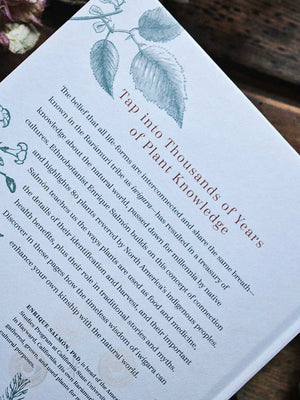 Tap into Thousands of Years
of Plant Knowledge
The belief that all life-forms are interconnected and share the same breath—
known in the Rarámuri tribe as iwígara—has resulted in a treasury of
knowledge about the natural world, passed down for millennia by native
cultures. Ethnobotanist Enrique Salmón builds on this concept of connection
and highlights 80 plants revered by North America's indigenous peoples.
Salmón teaches us the ways plants are used as food and medicine,
the details of their identification and harvest, and their important
health benefits, plus their role in traditional stories and myths.
Discover in these pages how the timeless wisdom of iwígara can
enhance your own kinship with the natural world.
ENRIQUE SALMÓN, PhD, is head of the American
Studies Program at California State University